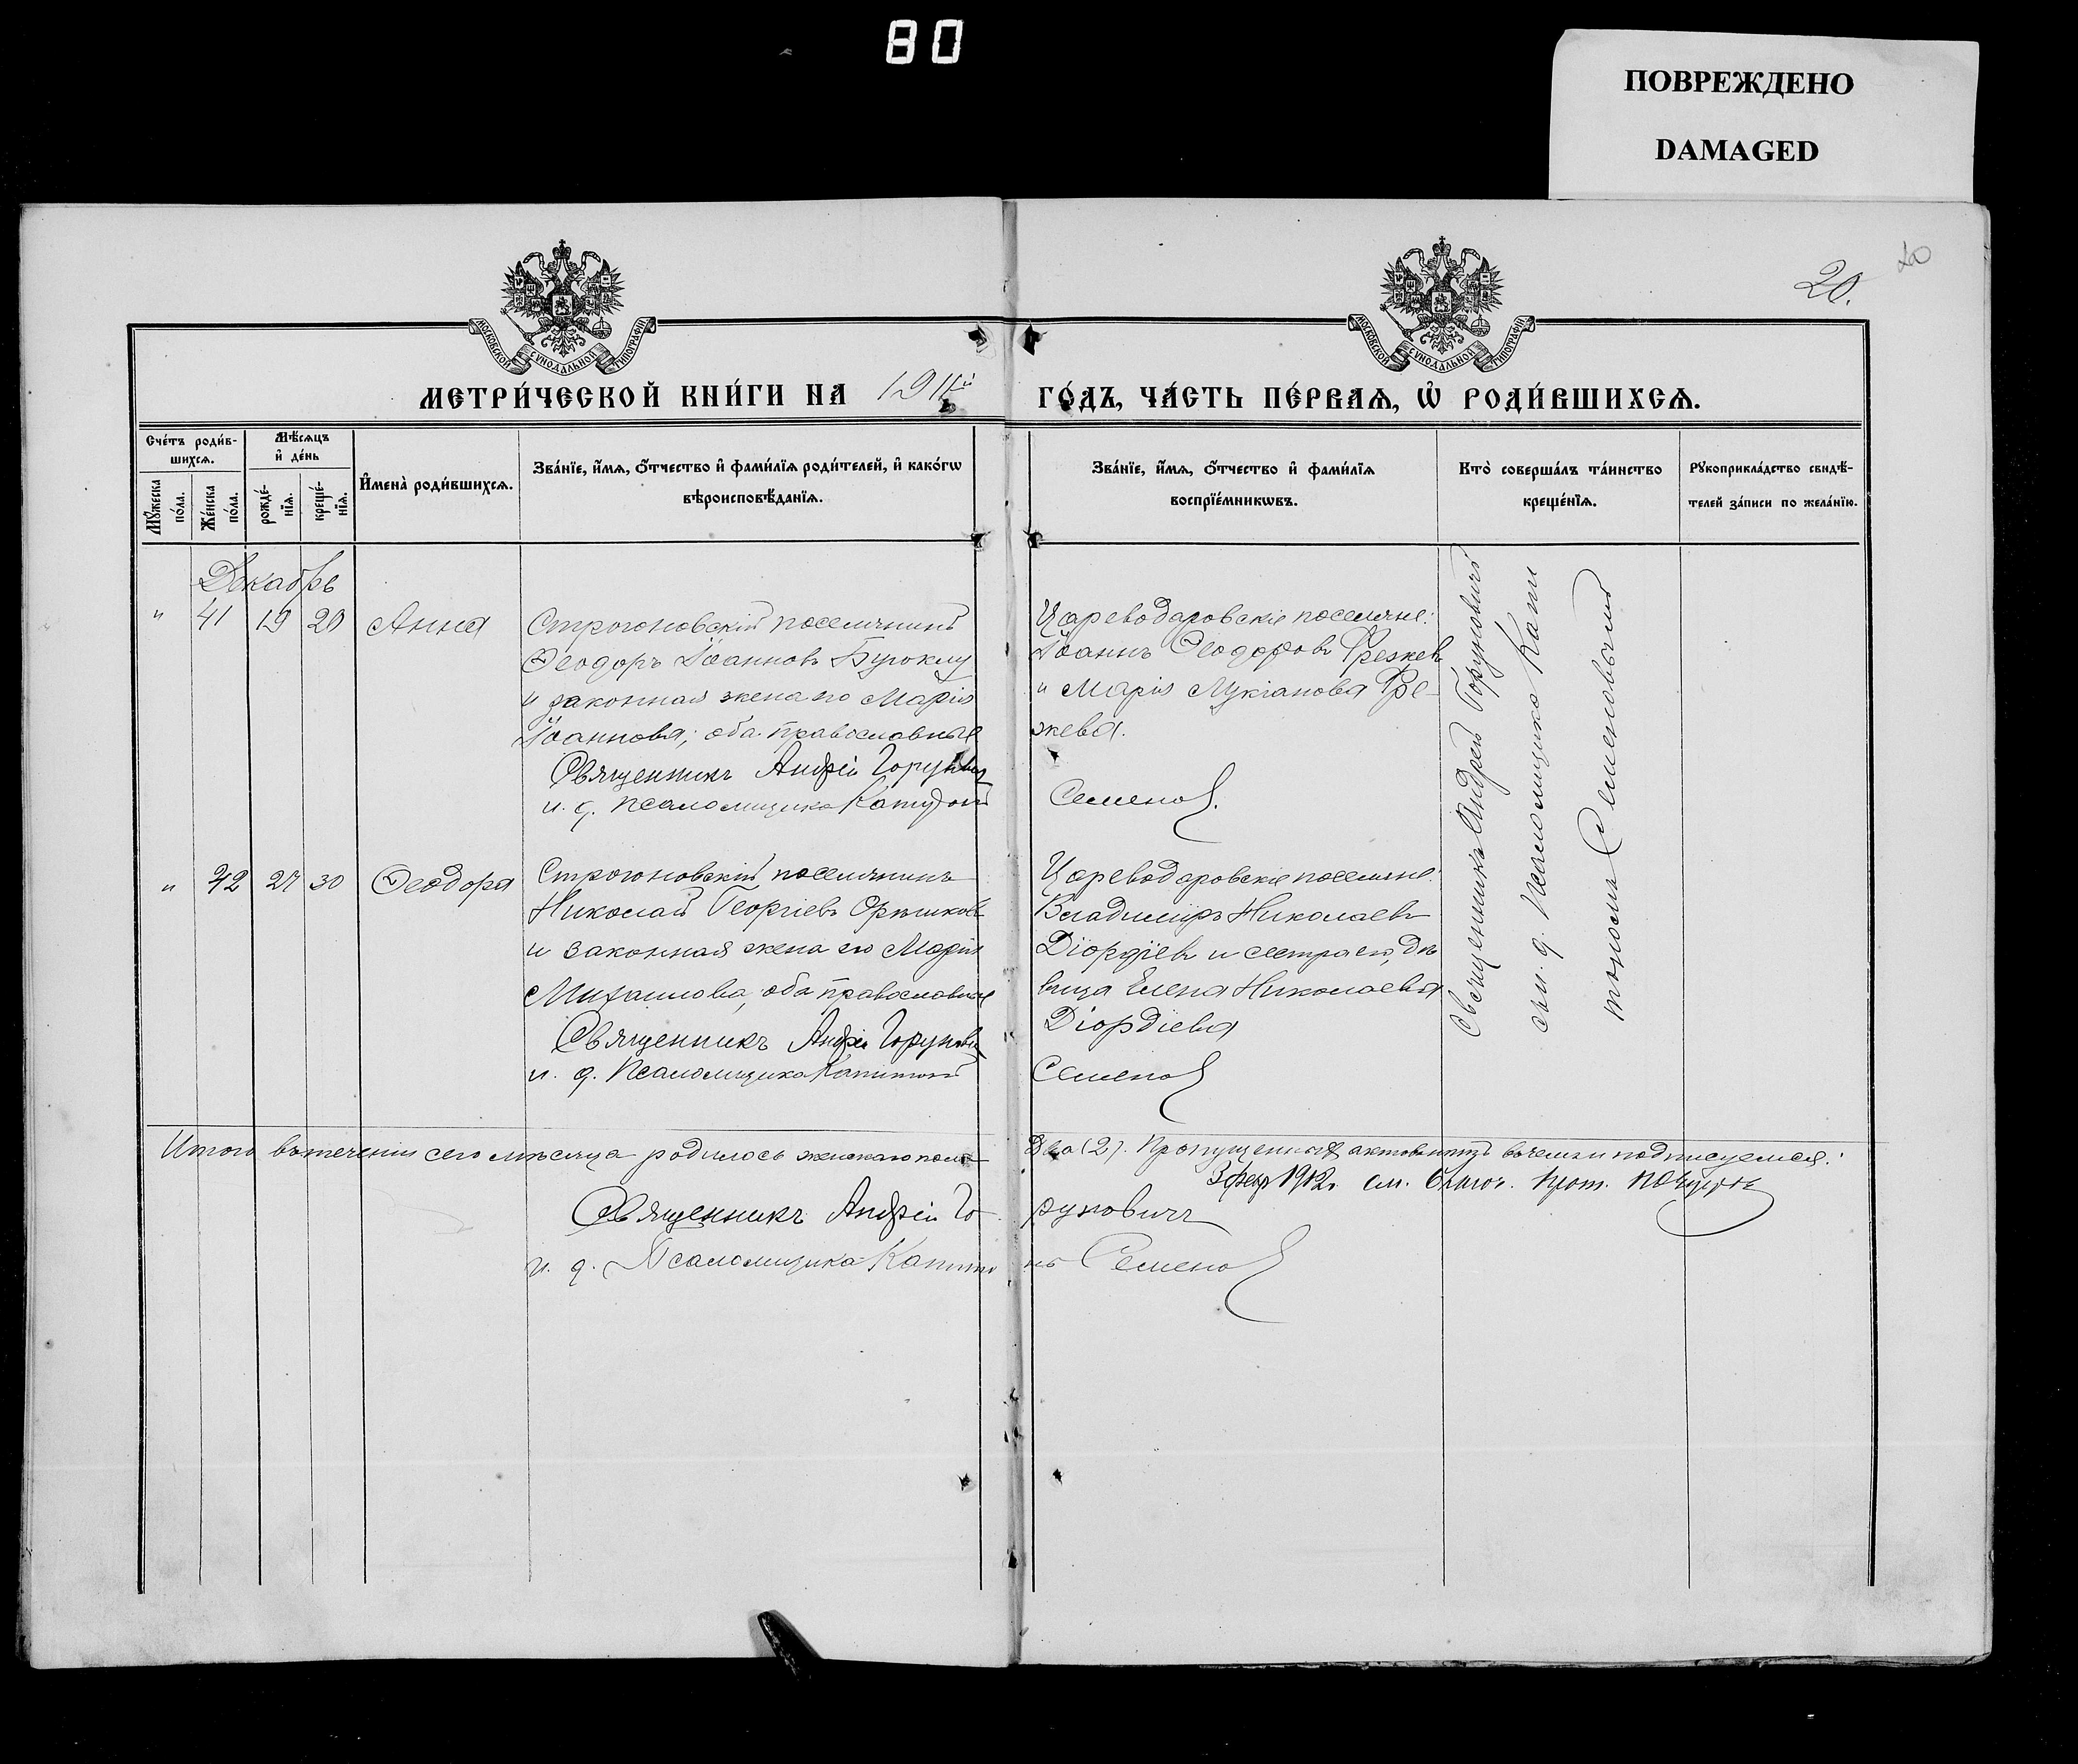 80
ПОВРЕЖДЕНО
DAMAGED
20.
20
МОСКОВСКОЙ СѴНОДАЛЬНОЙ ТИПОГРАФІИ.
МОСКОВСКОЙ СѴНОДАЛЬНОЙ ТИПОГРАФІИ.
МЕТРИ́ЧЕСКОЙ КНИ́ГИ НА 1911й ГО́ДЪ, ЧА́СТЬ ПЕ́РВАѦ, Ѡ҆ РОДИ́ВШИХСѦ.
Сче́тъ роди́в-
шихсѧ.
Мꙋ́жеска по́ла.
Же́нска по́ла.
Мѣ́сѧцъ
и҆ де́нь
рожде́-
нїѧ.
креще́-
нїѧ.
И҆мена̀ роди́вшихсѧ.
Зва́нїе, и҆́мѧ, ѻ҆́тчество и҆ фами́лїѧ роди́телей, и҆ како́гѡ
вѣроисповѣ́данїѧ.
Зва́нїе, и҆́мѧ, ѻ҆́тчество и҆ фами́лїѧ
воспрїе́мникѡвъ.
Кто̀ соверша́лъ та́инство
креще́нїѧ.
Рꙋкоприкла́дство свидѣ́-
телей за́писи по жела́нїю.
Декабрь
" 41 19 20 Анна
Строгоновскій поселянинъ
Ѳеодоръ Іоанновъ Бурокму
и законная жена его Марія
Іоаннова; оба православные
Священникъ Андрей Горунович
и. д. псаломщика Капитонъ
Цареводаровскіе поселяне:
Іоаннъ Ѳеодоровъ Фрежев
и Марія Лукіанова Фре-
жева.
Семенов.
" 42 27 30 Ѳеодора
Строгоновскій поселянинъ
Николай Георгіевъ Орѣшковъ
и законная жена его Марія
Михаилова, оба православные
Священникъ Андрей Горунович
и. д. Псаломщика Капитонъ
Цареводаровскіе поселяне:
Владиміръ Николаевъ
Діордіевъ и сестра его, дѣ
вица Елена Николаева
Діордіева
Семенов
Священникъ Андрей Горуновичъ
съ и. д. Псаломщика Капи
тономъ Семеновымъ
Итого въ теченіи сего мѣсяца родилось женскаго пола два (2). Пропущенныхъ актовъ нѣтъ въ чемъ и подписуемся:
3 февр 1912 г. см. Благоч. Прот.
Священникъ Андрей Го- руновичъ
и. д. Псаломщика Капито нъ Семенов